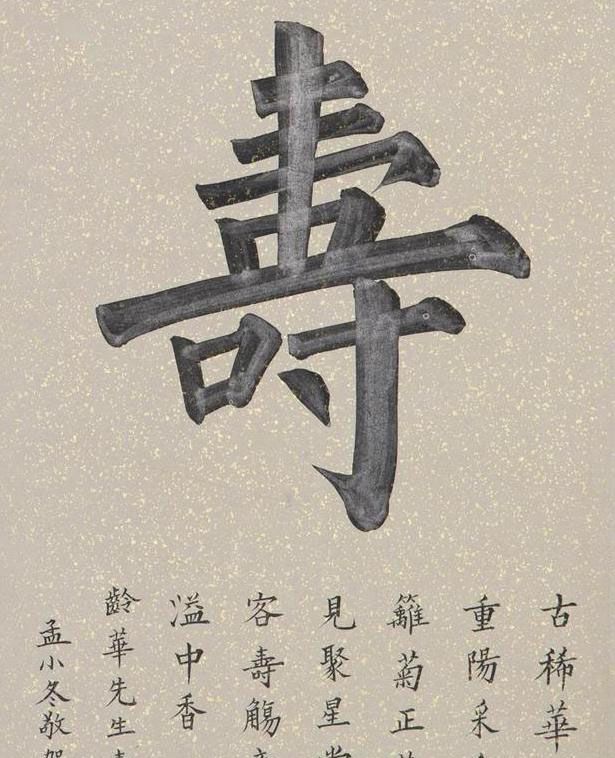 壽
古稀華
重陽采
籬菊正
見聚星
客壽觴
溢中香
齡華先生
孟小冬敬賀